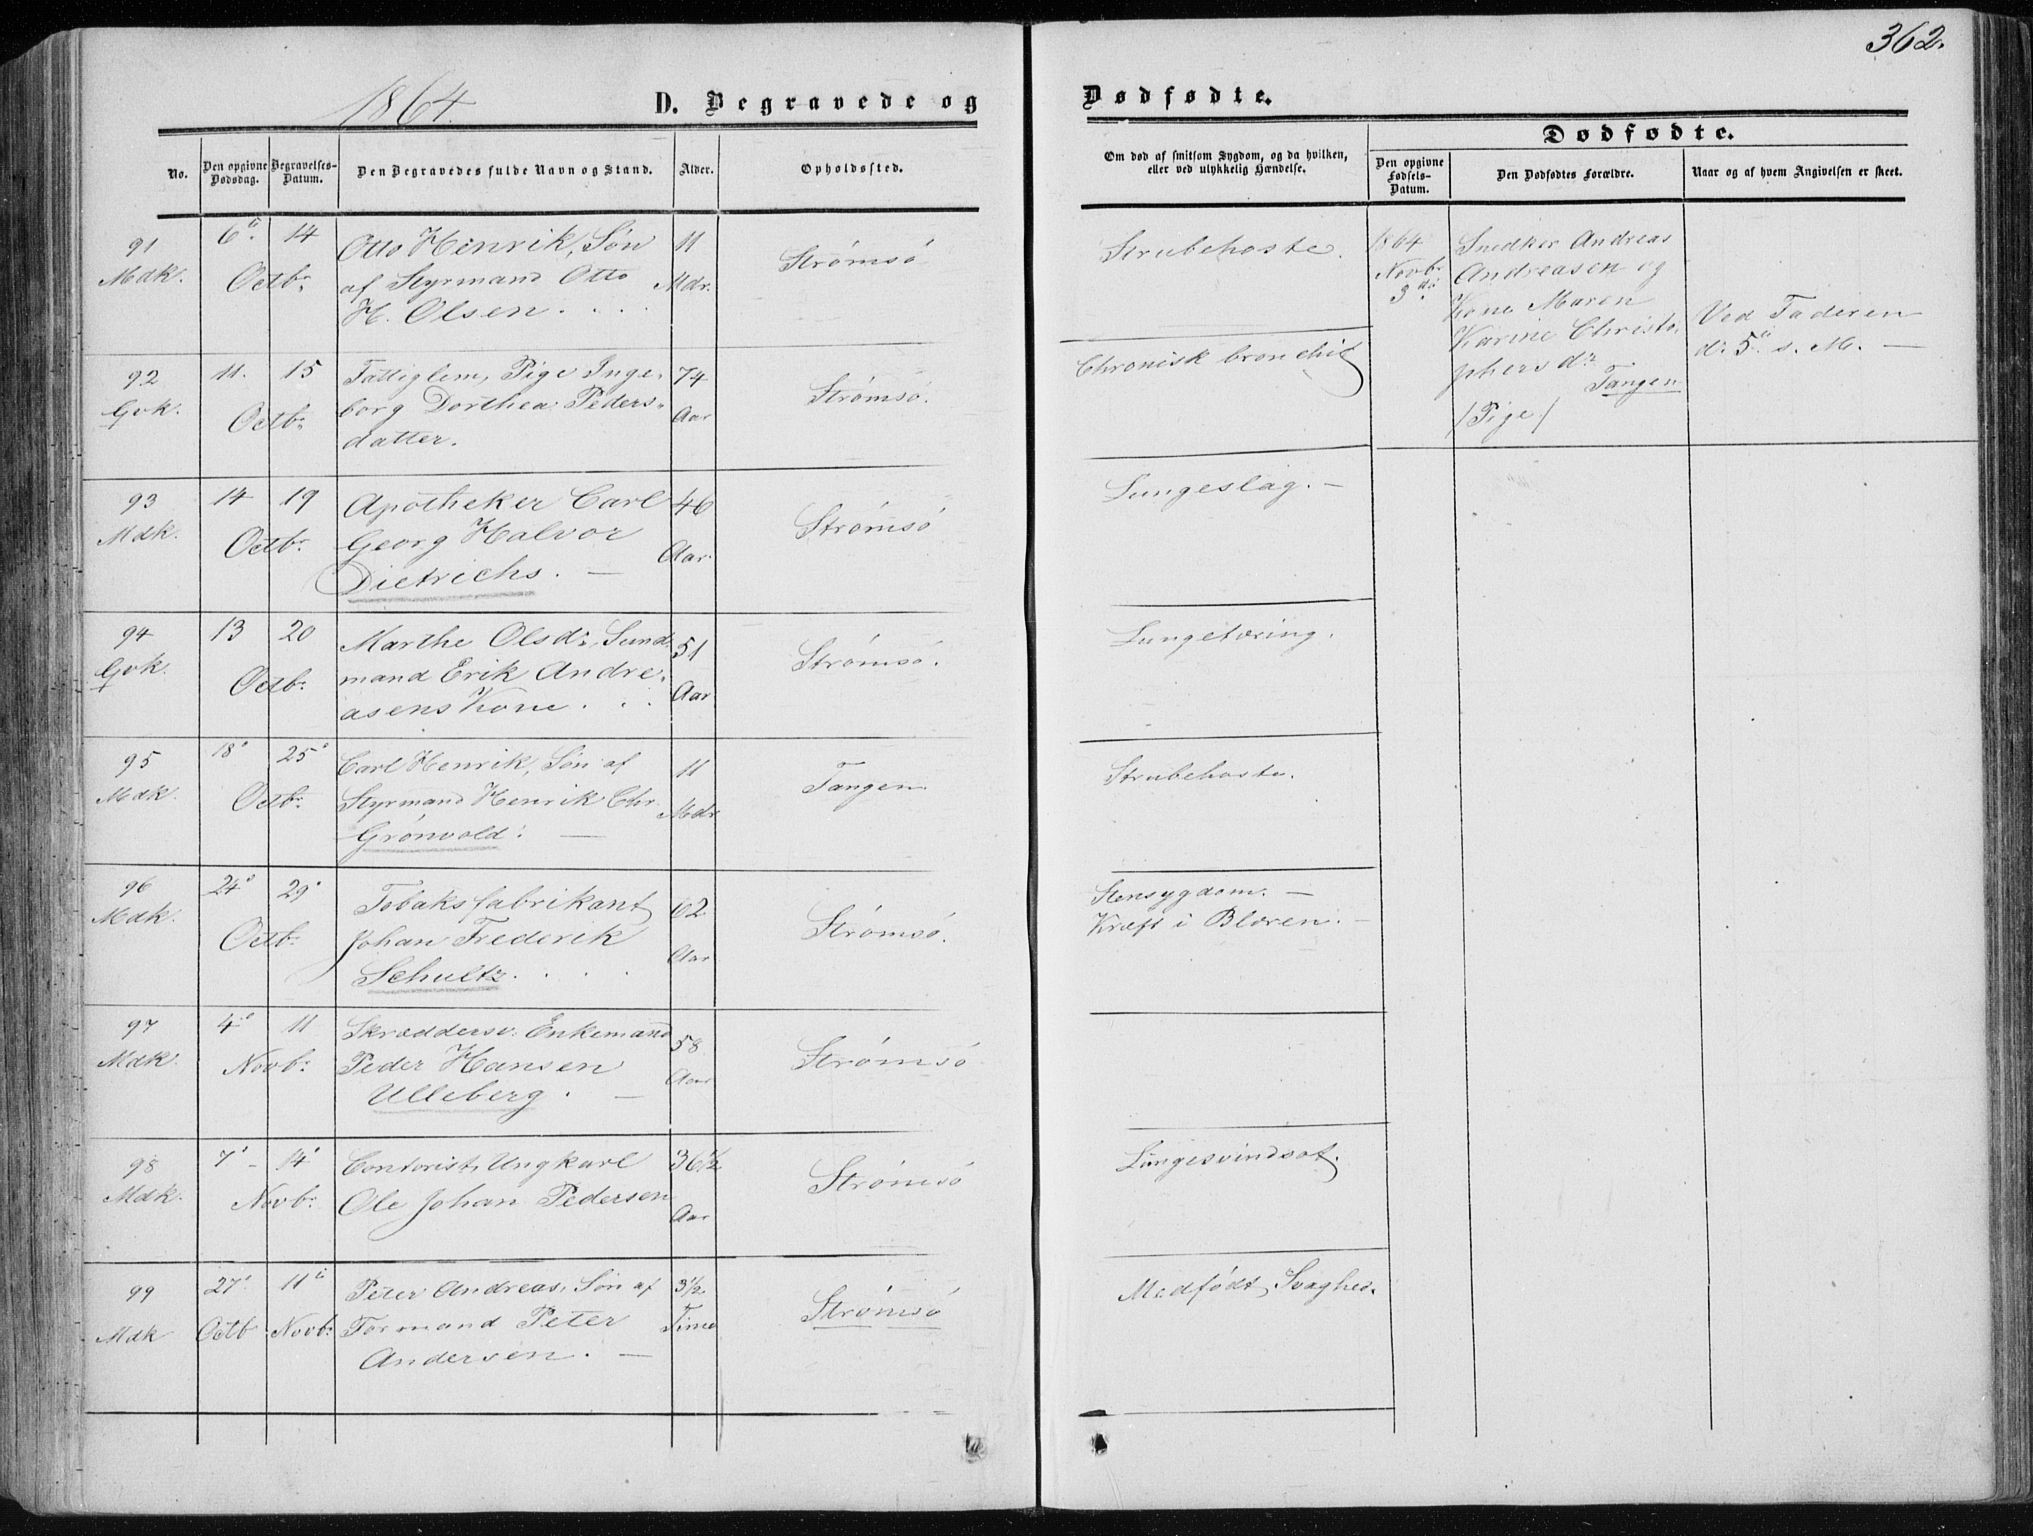 362.
1864.
D. Begravede og
Dødfødte.
Dødfødte.
No.
Den opgivne Dødsdag.
Begravelses-Datum.
Den Begravedes fulde Navn og Stand.
Alder.
Opholdssted.
Om død af smitsom Sygdom, og da hvilken,
eller ved ulykkelig Hændelse.
Den opgivne Fødsels-Datum.
Den Dødfødtes Forældre.
Naar og af hvem Angivelsen er skeet.
91
Mdk.
6te 14
Octbr.
Otto Henrik, Søn
af Styrmand Otto
H. Olsen . . . .
11
Mdr.
Strømsö
Strubehoste.
1864
Novbr.
3die
Snedker Andreas
Andreasen og
Kone Maren
Karine Christo,
phersdr.
Tangen
/Pige/
Ved Faderen
d. 5te s. M. —
92
Gvk.
11. 15
Octbr.
Fattiglem, Pige Inge,
borg Dorthea Peders,
datter.
74
Aar
Strømsö.
Chronisk bronchit
93
Mdk.
14 19
Octbr.
Apotheker Carl
Georg Halvor
Dietrichs. —
46
Aar.
Strømsö
Lungeslag. —
94
Gvk.
13 20
Octbr.
Marthe Olsdr., Sund,
mand Erik Andre,
asens Kone . . .
51
Aar
Strømsö.
Lungetæring.
95
Mdk.
18 25
Octbr.
Carl Henrik, Søn af
Styrmand Henrik Chr.
Grönvold. —
11
Mdr
Tangen
Strubehoste.
96
Mdk.
24 29
Octbr.
Tobaksfabrikant
Johan Frederik
Schultz . . . .
62
Aar
Strømsö.
Stensygdom. —
Kræft i Blæren. —
97
Mdk.
4 11
Novbr.
Skræddersv. Enkemand
Peder Hansen
Ulleberg . —
58
Aar
Strømsö
98
Mdk.
7 - 14
Novbr.
Contorist, Ungkarl
Ole Johan Pedersen
36 1/2
Aar
Strømsö
Lungesvindsot.
99
Mdk
27 11te
Octb. Novbr.
Peter Andreas, Søn af
Formand Peter
Andersen. —
3 1/2
Time
Strømsö
Medfödt Svaghed.